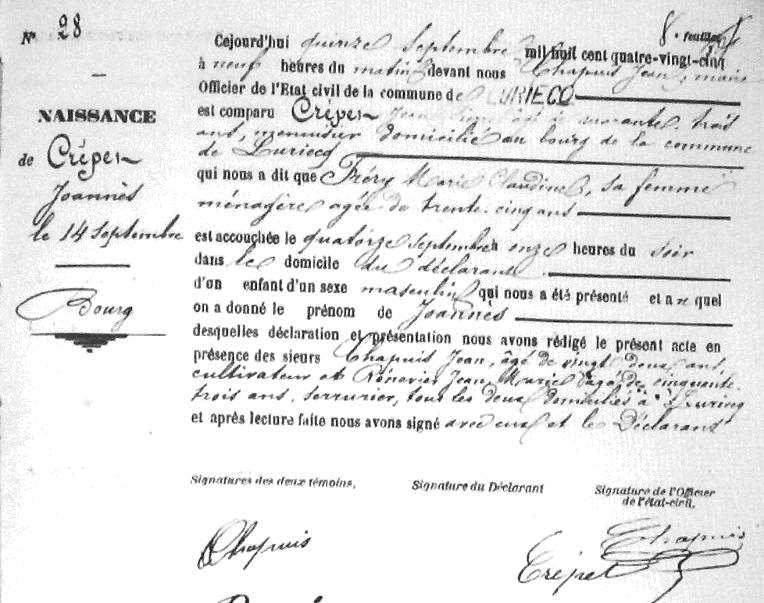 N° 28
8. feuillet
NAISSANCE
de Crépet
Joannès
le 14 Septembre
Bourg
Cejourd'hui quinze Septembre mil huit cent quatre-vingt-cinq
à neuf heures du matin devant nous Chapuis Jean, maire
Officier de l'Etat civil de la commune de LURIECQ
est comparu Crépet Jean âgé de quarante-trois
ans, menuisier domicilié au bourg de la commune
de Luriecq
qui nous a dit que Fréry Marie Claudine, sa femme
ménagère agée de trente-cinq ans
est accouchée le quatorze septembre à onze heures du soir
dans le domicile du déclarant
d'un enfant d'un sexe masculin qui nous a été présenté et auquel
on a donné le prénom de Joannès
desquelles déclaration et présentation nous avons rédigé le présent acte en
présence des sieurs Chapuis Jean, âgé de vingt deux ans,
cultivateur et Jean Marie âgé de cinquante-
trois ans, serrurier, tous les deux domiciliés à Luriecq
et après lecture faite nous avons signé avec eux et le Déclarant
Signatures des deux témoins,
Signature du Déclarant
Signature de l'Officier
de l'état-civil,
Chapuis
Crépet
Chapuis